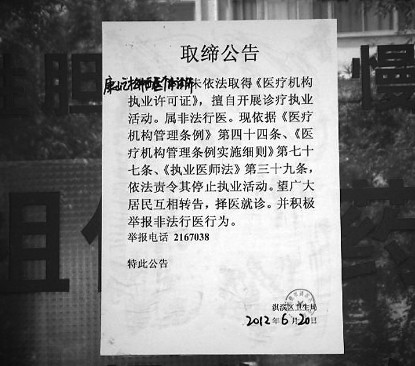 取缔公告
未依法取得《医疗机构
执业许可证》，擅自开展诊疗执业
活动。属非法行医。现依据《医疗
机构管理条例》第四十四条、《医
疗机构管理条例实施细则》第七十
七条、《执业医师法》第三十九条，
依法责令其停止执业活动。望广大
居民互相转告，择医就诊。并积极
举报非法行医行为。
举报电话 2167038
特此公告
淇滨区卫生局
2012年6月20日